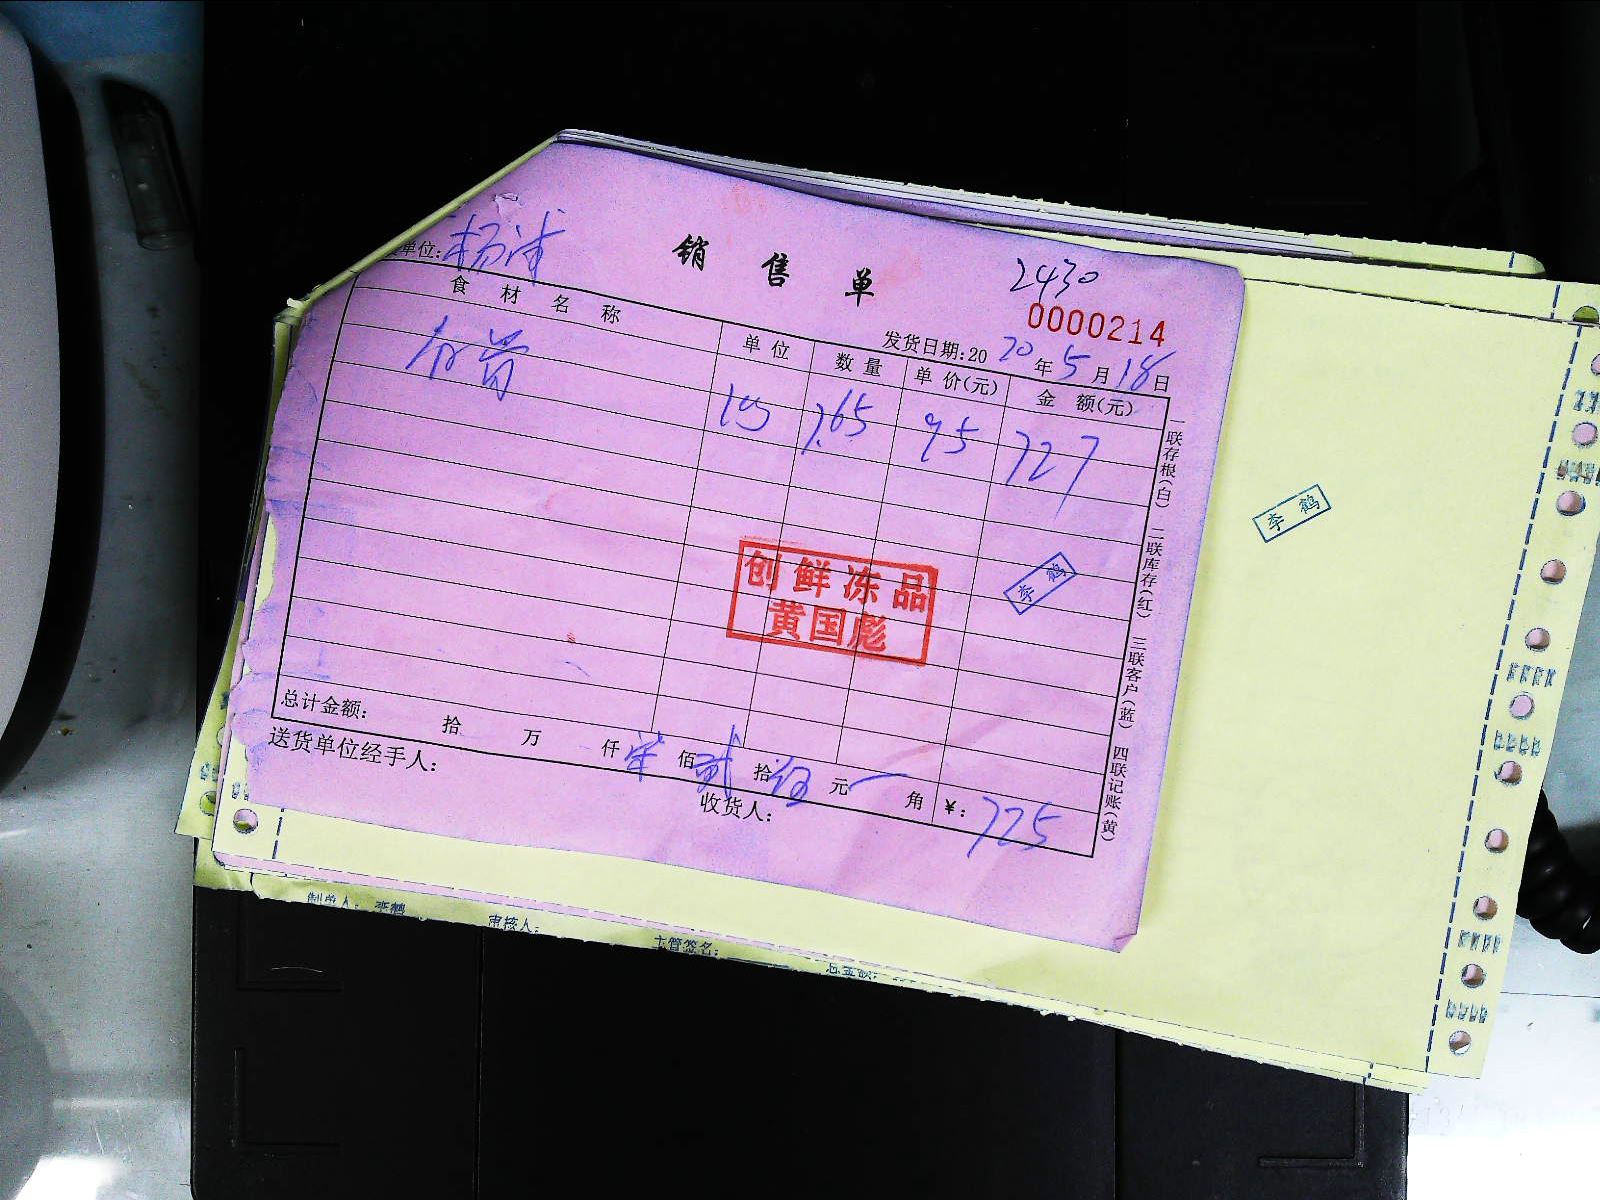 单位：杨浦
销售单
2430
0000214
发货日期：2020年5月18日
食材名称 单位 数量 单价(元) 金额(元)
7.65 95 727
创鲜冻品
黄国彪
李鹤
李鹤
总计金额： 拾 万 仟 柒 佰 贰 拾 伍 元 一 角 ¥：725
送货单位经手人： 收货人：
一联存根(白) 二联库存(红) 三联客户(蓝) 四联记账(黄)
制单人：李鹤 审核人： 主管签名： 总金额：